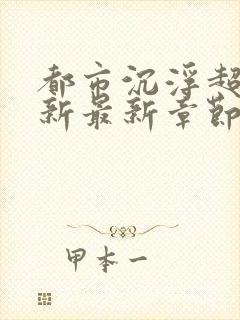 都市沉浮超
新最新章节
甲本一